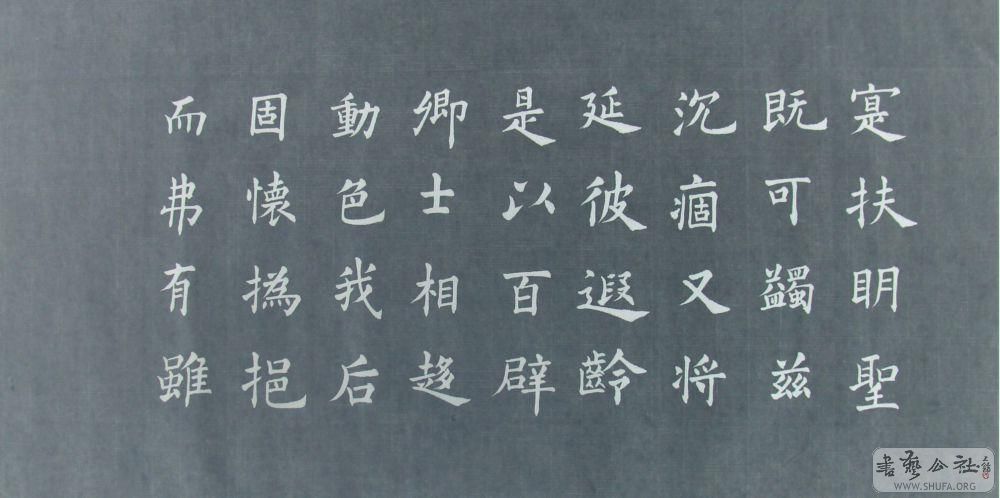 寔扶眀聖
既可蠲兹
沉痼又将
延彼遐齡
是以百辟
卿士相趍
動色我后
固懷撝挹
而弗有雖
書藝公社
WWW.SHUFA.ORG